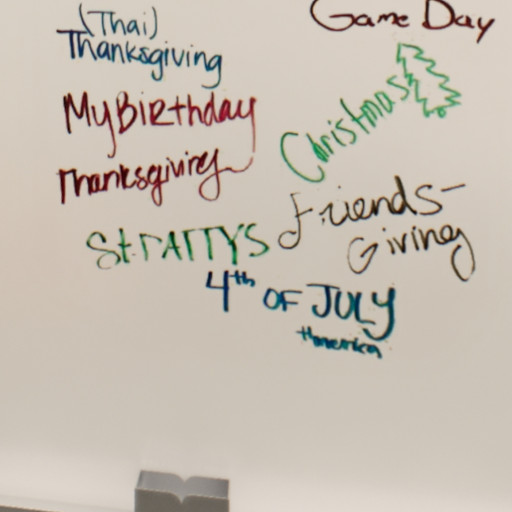 (Thai)
Thanksgiving
Game Day
MyBirthday
Christmas
Thanksgiving
Friends-
Giving
St. PATTY'S
4th OF JULY
#america